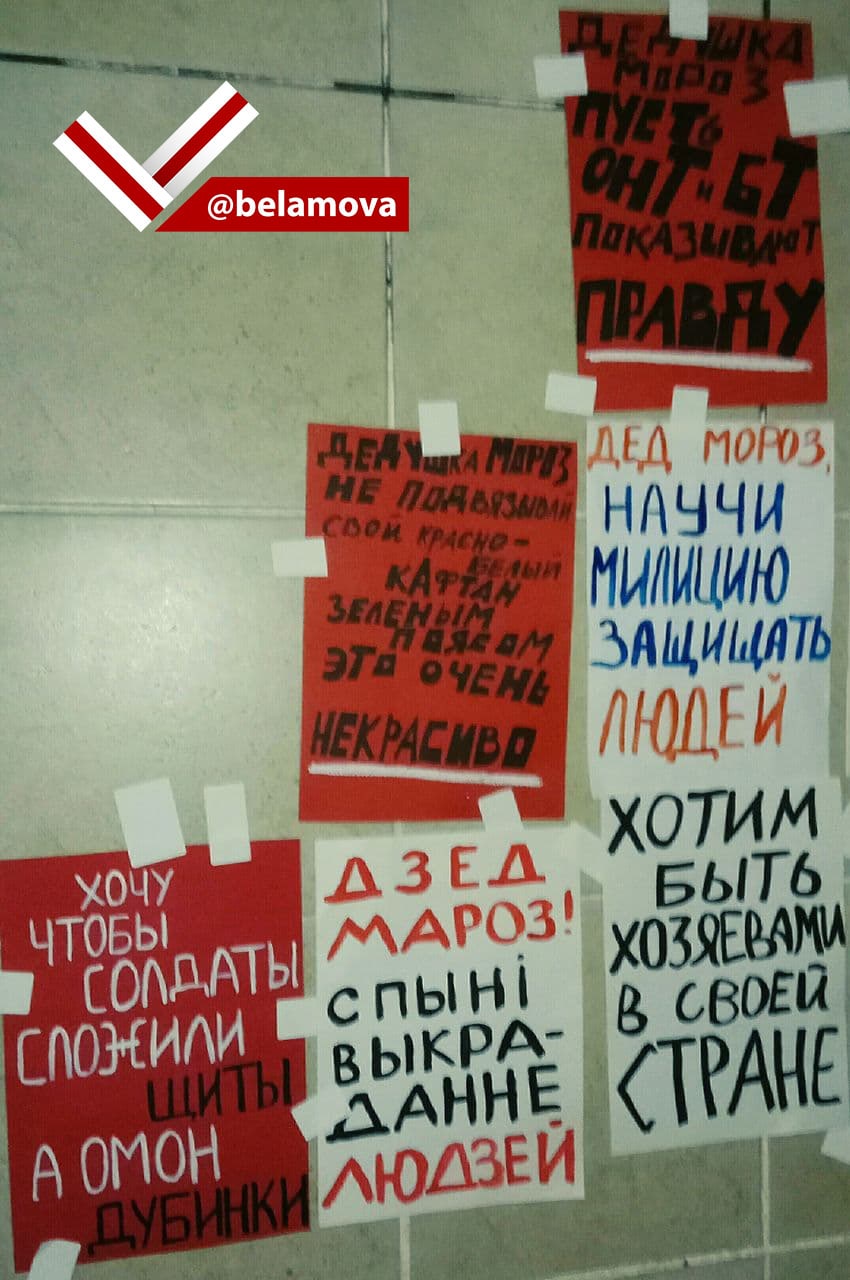 @belamova
ДЕДУШКА
МОРОЗ
ПУСТЬ
ОНТ и БТ
ПОКАЗЫВАЮТ
ПРАВДУ
ДЕДУШКА МОРОЗ
НЕ ПОДВЯЗЫВАЙ
СВОЙ КРАСНО-
БЕЛЫЙ
КАФТАН
ЗЕЛЕНЫМ
ПОЯСОМ
ЭТО ОЧЕНЬ
НЕКРАСИВО
ДЕД МОРОЗ,
НАУЧИ
МИЛИЦИЮ
ЗАЩИЩАТЬ
ЛЮДЕЙ
ХОЧУ
ЧТОБЫ
СОЛДАТЫ
СЛОЖИЛИ
ЩИТЫ
А ОМОН
ДУБИНКИ
ДЗЕД
МАРОЗ!
СПЫНІ
ВЫКРА-
ДАННЕ
ЛЮДЗЕЙ
ХОТИМ
БЫТЬ
ХОЗЯЕВАМИ
В СВОЕЙ
СТРАНЕ